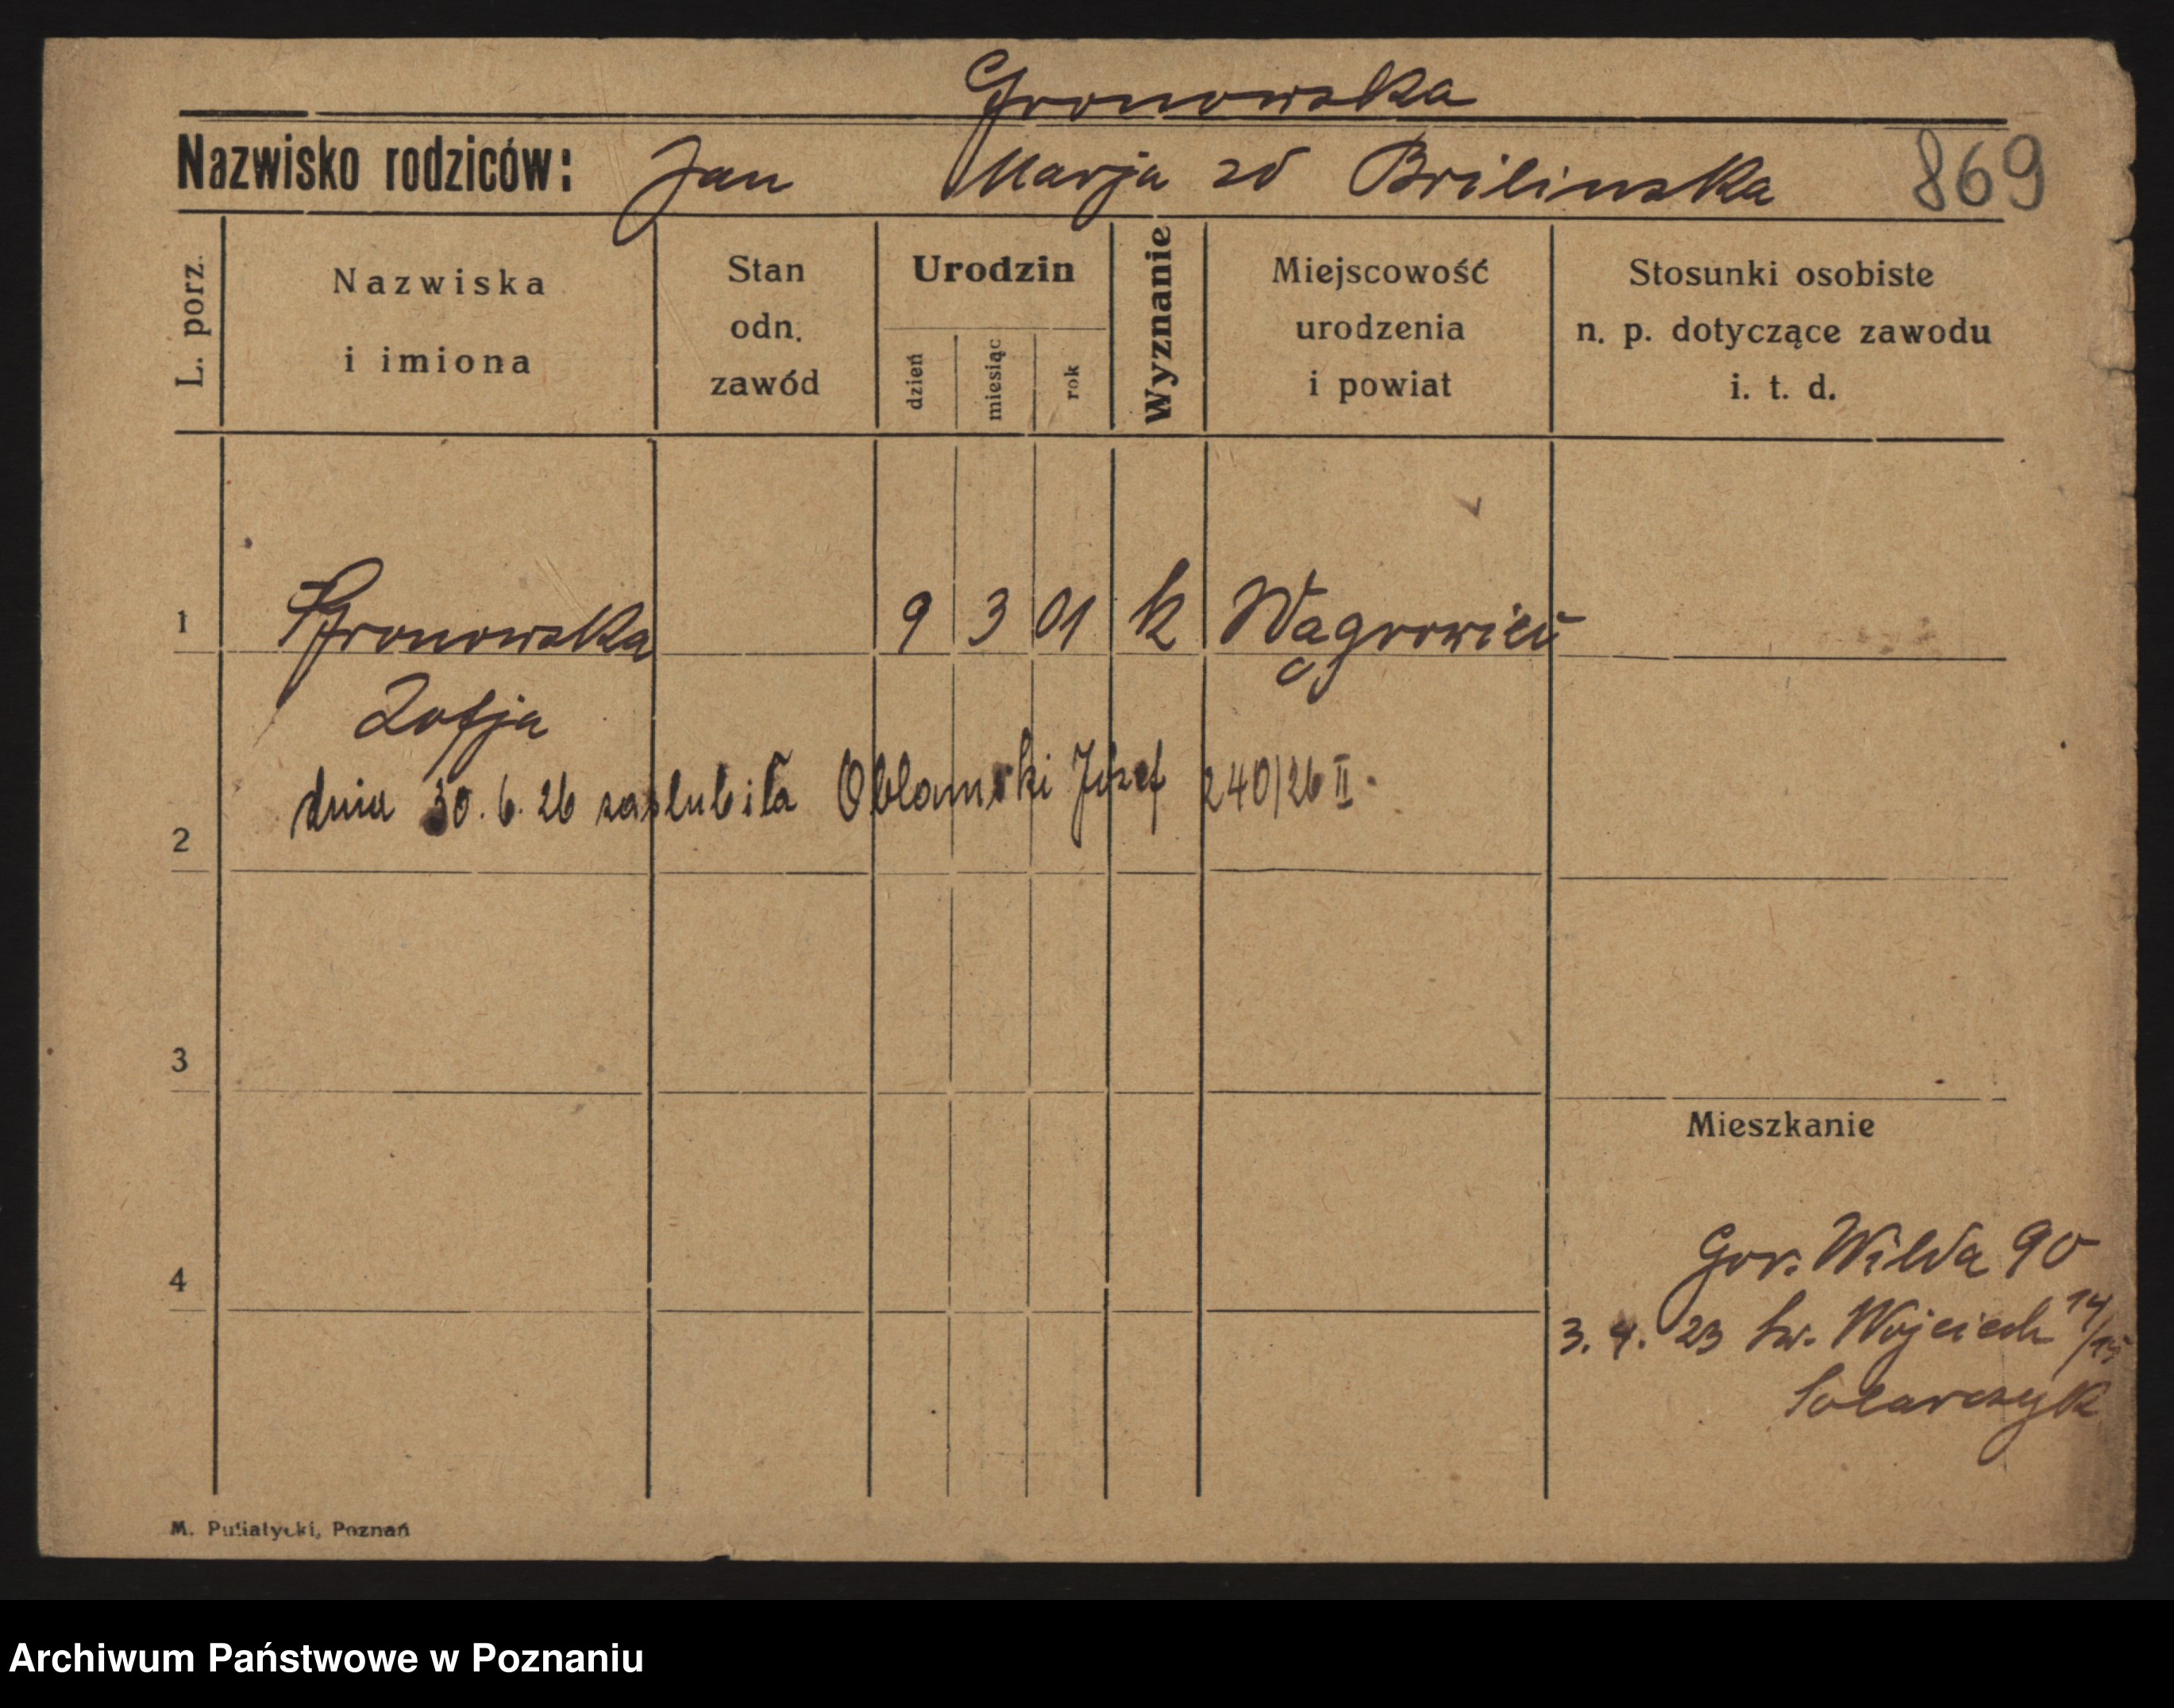 Gronowska
Nazwisko rodziców: Jan Marja zd Brilinska 869
L. porz.
Nazwiska
i imiona
Stan
odn.
zawód
Urodzin
dzień
miesiąc
rok
Wyznanie
Miejscowość
urodzenia
i powiat
Stosunki osobiste
n. p. dotyczące zawodu
i. t. d.
1 Gronowska 9 3 01 k Wągrowiec
Zofja
dnia 30.6.26 zaslubiła Oblamski Józef 240/26 II.
2
3
Mieszkanie
4
Gor. Wilda 90
3. 4. 23 św. Wojciech 14/15
Solarczyk
M. Putiatycki, Poznań
Archiwum Państwowe w Poznaniu